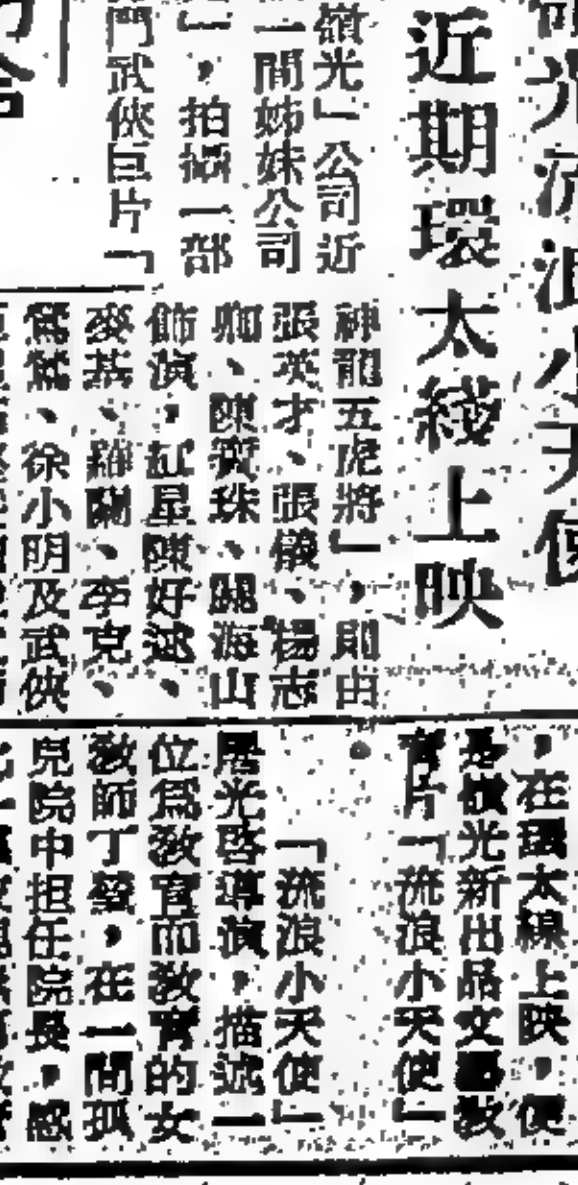 流浪小天使
近期環太綫上映
嶺光」公司近
一間姊妹公司
」,拍攝一部
門武俠巨片「
神龍五虎將」,則由
張英才、張儀、楊志
卿、陳寶珠、關海山
飾演,紅星陳好逑、
麥基、羅蘭、李克、
鴛鴦、徐小明及武俠
,在環太線上映,便
是嶺光新出品文藝教
育片「流浪小天使」
。
「流浪小天使」
屠光啓導演,描述一
位爲敎官而敎育的女
敎師丁瑩,在一間孤
兒院中担任院長,感